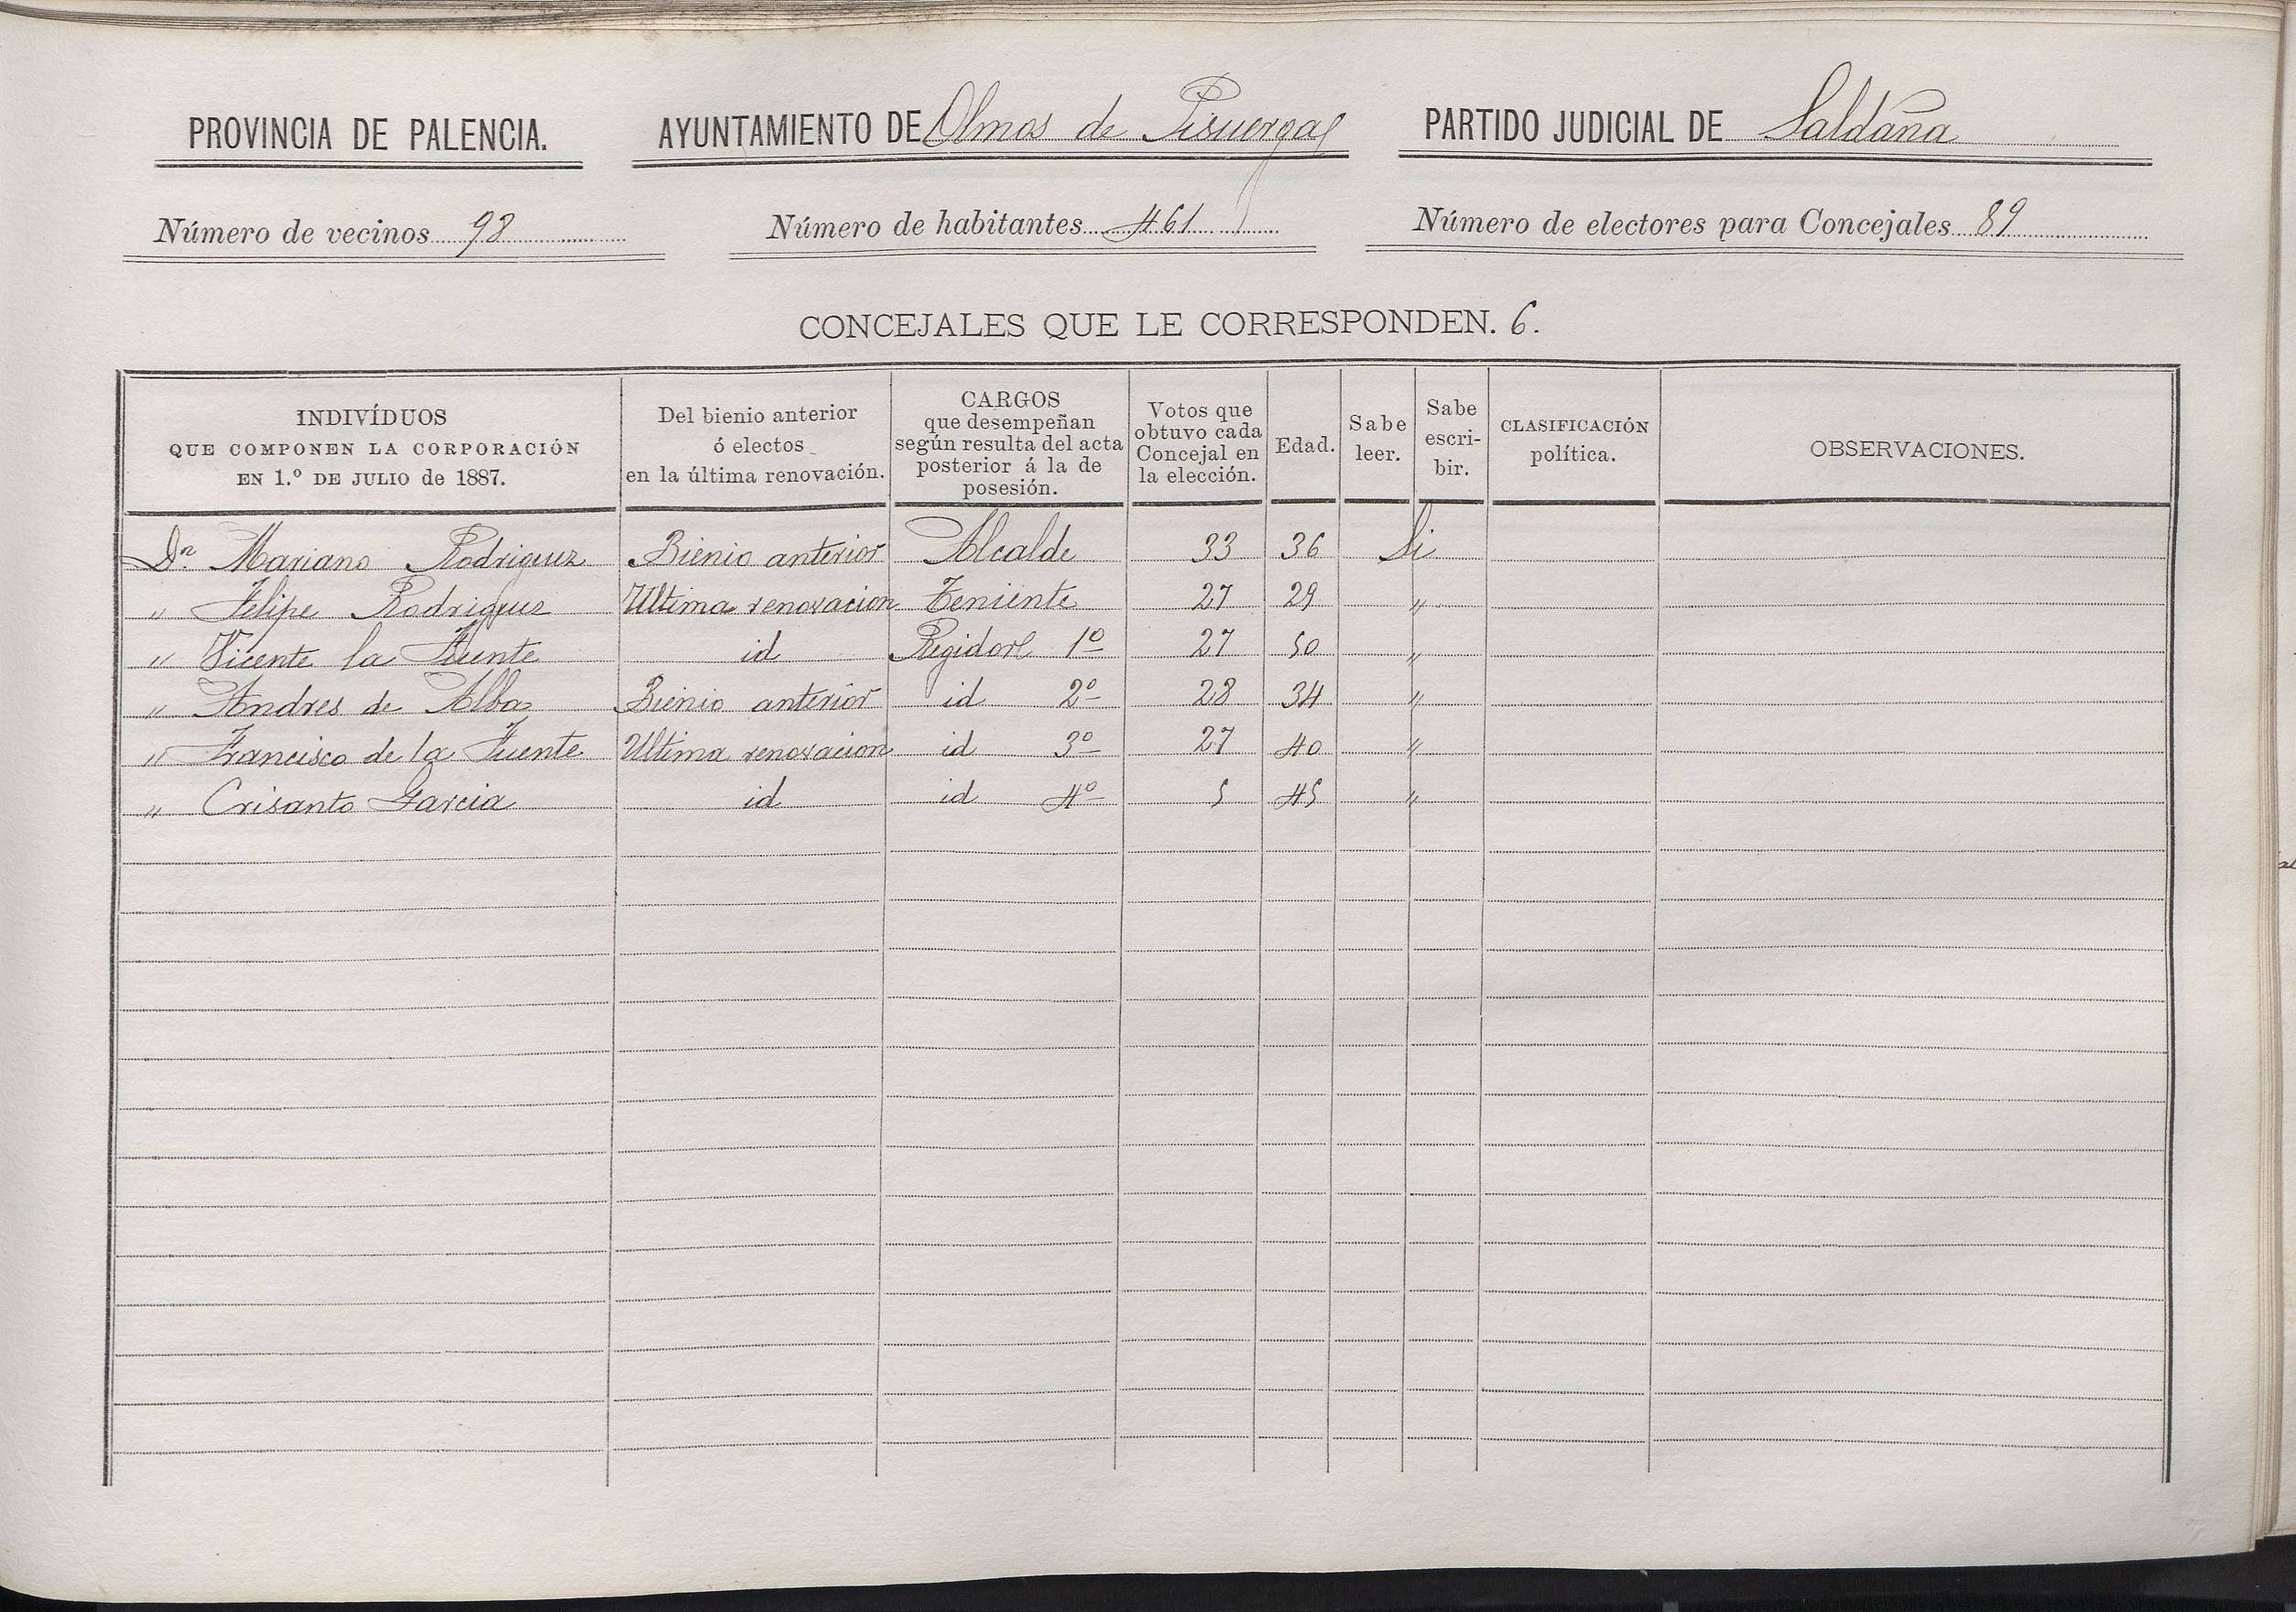 PROVINCIA DE PALENCIA. AYUNTAMIENTO DE Olmos de Pisuerga PARTIDO JUDICIAL DE Saldaña
Número de vecinos 98 Número de habitantes 461 Número de electores para Concejales 89
CONCEJALES QUE LE CORRESPONDEN. 6.
INDIVÍDUOS
QUE COMPONEN LA CORPORACIÓN
EN 1.º DE JULIO de 1887.
Del bienio anterior
ó electos
en la última renovación.
CARGOS
que desempeñan
según resulta del acta
posterior á la de
posesión.
Votos que
obtuvo cada
Concejal en
la elección.
Edad.
Sabe
leer.
Sabe
escri-
bir.
CLASIFICACIÓN
política.
OBSERVACIONES.
Dn. Mariano Rodriguez Bienio anterior Alcalde 33 36 Si
" Felipe Rodriguez Ultima renovacion Teniente 27 29 "
" Vicente la Fuente id Regidor 1º 27 50 "
" Andres de Alba Bienio anterior id 2º 28 34 "
" Francisco de la Fuente Ultima renovacion id 3º 27 40 "
" Crisanto Garcia id id 4º 5 45 "